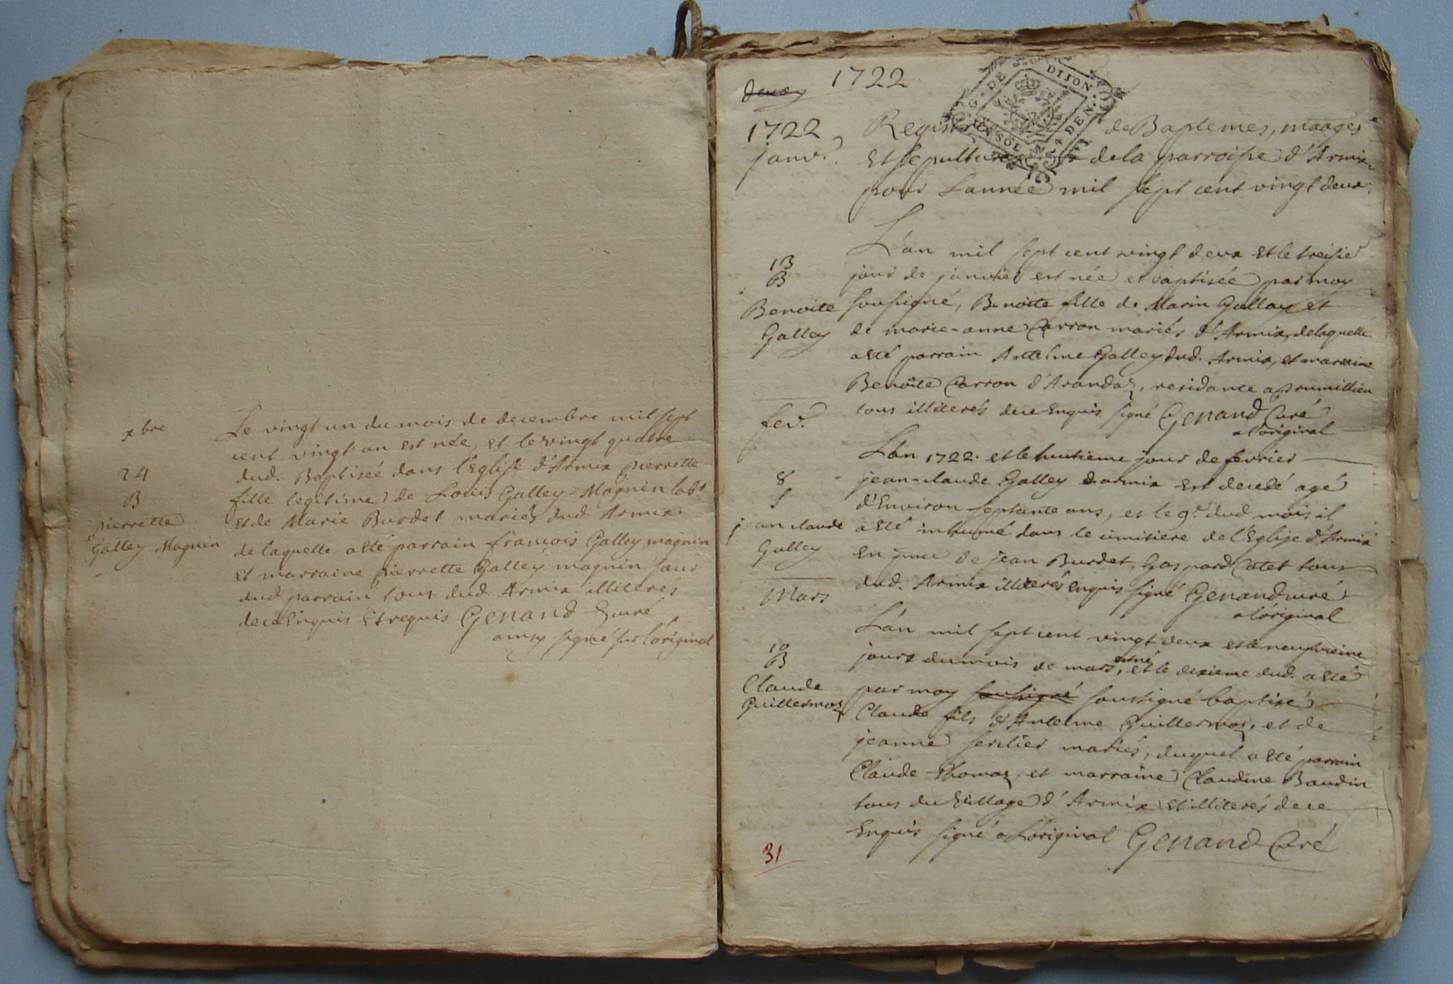 xbre
24
B
pierrette
Galley Magnin
Le vingt un du mois de decembre mil sept
cent vingt un est née, et le vingt quatre
dud. Baptisée dans l'Eglise d'Armix pierrette
fille legitime de Louis Galley-Magnin
et de Marie Burdet mariés dud. Armix
de laquelle a été parrain françois Galley magnin
et marraine pierrette Galley magnin
dud. parrain tous dud. Armix illiterés
de ce Enquis et requis Genand Curé
ainsy signé sur l'original
1722
1722
janv.
Registre de Baptemes, mariages
et sepultures de la parroisse d'Armix
pour l'année mil sept cent vingt deux.
G. DE DIJON
13
B
Benoite
Galley
L'an mil sept cent vingt deux et le treisie
jour de janvier est née et baptisée par moy
soussigné, Benoite fille de Marin Galley et
de marie-anne Carron mariés d'Armix, de laquelle
a été parrain Antelme Galley dud. Armix, et marraine
Benoite Carron d'Arandaz, residante a prumillieu
tous illiterés de ce Enquis signé Genand Curé
a l'original
fev.
8
S
jean claude
Galley
L'an 1722. et le huitieme jour de fevrier
jean-claude Galley d'armix est decedé agé
d'Environ septante ans, et le 9e dud. mois il
a été inhumé dans le cimitiere de l'Eglise d'Armix
En pnce de jean Burdet, Gaspard Cattet tous
dud. Armix illiteres Enquis signé Genand curé
a l'original
Mars
10
B
Claude
Guillermoz
L'an mil sept cent vingt deux et le neufvieme
jours du mois de mars est né, et le dixieme dud. a été
par moy soussigné soussigné baptisé
Claude fils d'Antelme Guillermoz, et de
jeanne mariés, duquel a été parrain
Claude Thomaz, et marraine Claudine Baudin
tous du village d'Armix et illiterés de ce
Enquis signé a l'original Genand Curé
31